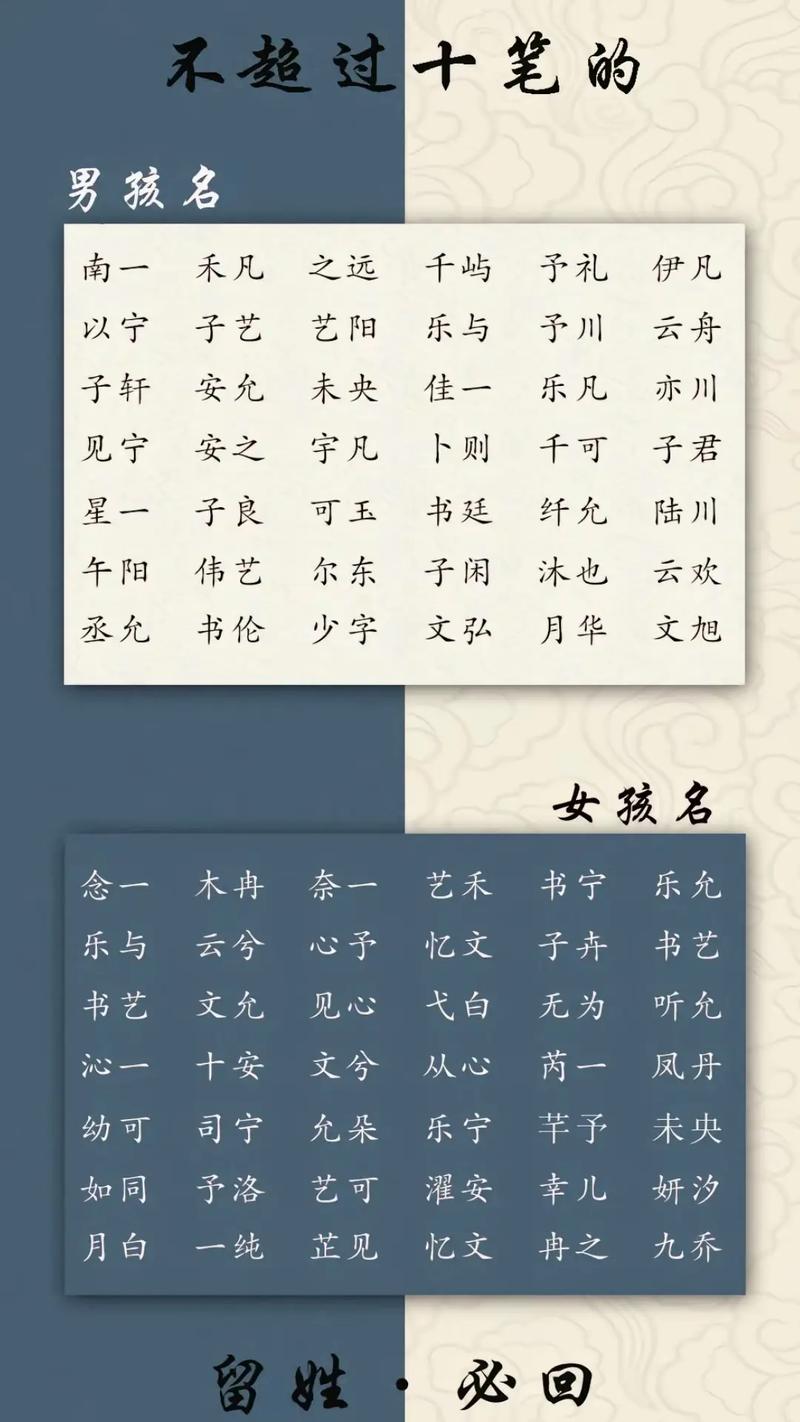 不超过十笔的
男孩名
南一 禾凡 之远 千屿 予礼 伊凡
以宁 子艺 艺阳 乐与 予川 云舟
子轩 安允 未央 佳一 乐凡 亦川
见宁 安之 宇凡 卜则 千可 子君
星一 子良 可玉 书廷 纤允 陆川
午阳 伟艺 尔东 子闲 沐也 云欢
丞允 书伦 少字 文弘 月华 文旭
女孩名
念一 木冉 奈一 艺禾 书宁 乐允
乐与 云兮 心予 忆文 子卉 书艺
书艺 文允 见心 弋白 无为 听允
沁一 十安 文兮 从心 芮一 凤丹
幼可 司宁 允朵 乐宁 芊予 未央
如同 予洛 艺可 濯安 幸儿 妍汐
月白 一纯 芷见 忆文 冉之 九乔
留姓·必回